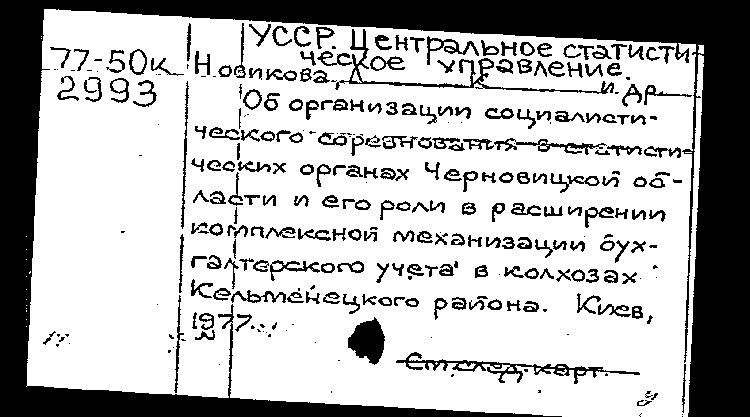 УССР. Центральное статисти-
ческое управление.
77-50к
2993
Новикова, Л. К. и др.
Об организации социалисти-
ческого соревнования в статисти-
ческих органах Черновицкой об-
ласти и его роли в расширении
комплексной механизации бух-
галтерского учета в колхозах
Кельменецкого района. Киев,
1977.
См. след. карт.